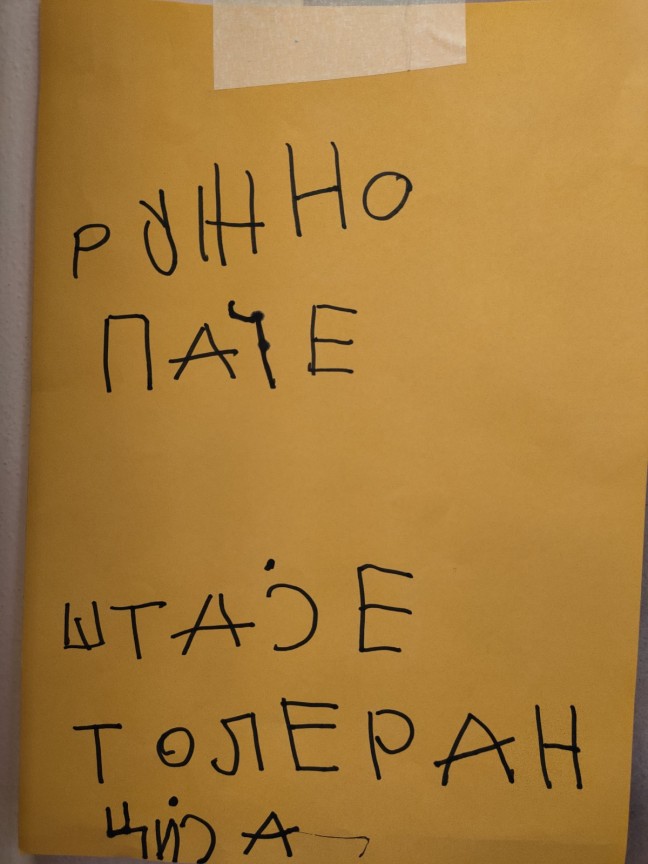 РУЖНО
ПАЧЕ
ШТАЈЕ
ТОЛЕРАН
ЦИЈА